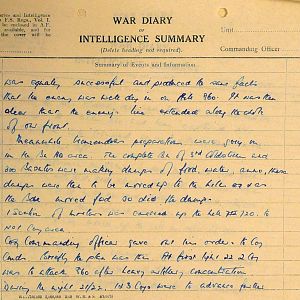 WAR DIARY
or
INTELLIGENCE SUMMARY
(Delete heading not required).
and Intelligence
F.S. Regs., Vol. I.
be enclosed in A.F.
available, and for
the cover will be
Unit
Commanding Officer
Summary of Events and Information
was equally successful and produced the same facts
that the enemy was well dug in on Hill 860. It was then
clear that the enemy's line extended along the whole
of our front.
Meanwhile tremendous preparations were going on
in the Bn HQ area. The complete Bn of 3rd Coldstream and
300 were making dumps of food, water, ammo, these
dumps was then to be moved up to the hills as was
the Bde moved fwd so did the dumps.
1 Section of mortars was carried up the hill 720. to
No1 Coy area
Commanding Officer gave out his orders to Coy
Comds. Briefly the plan was this At first light 22 2 Coy
was to attack 860 after heavy artillery concentration
During the night 21/22. 1 & 3 Coys were to advance further